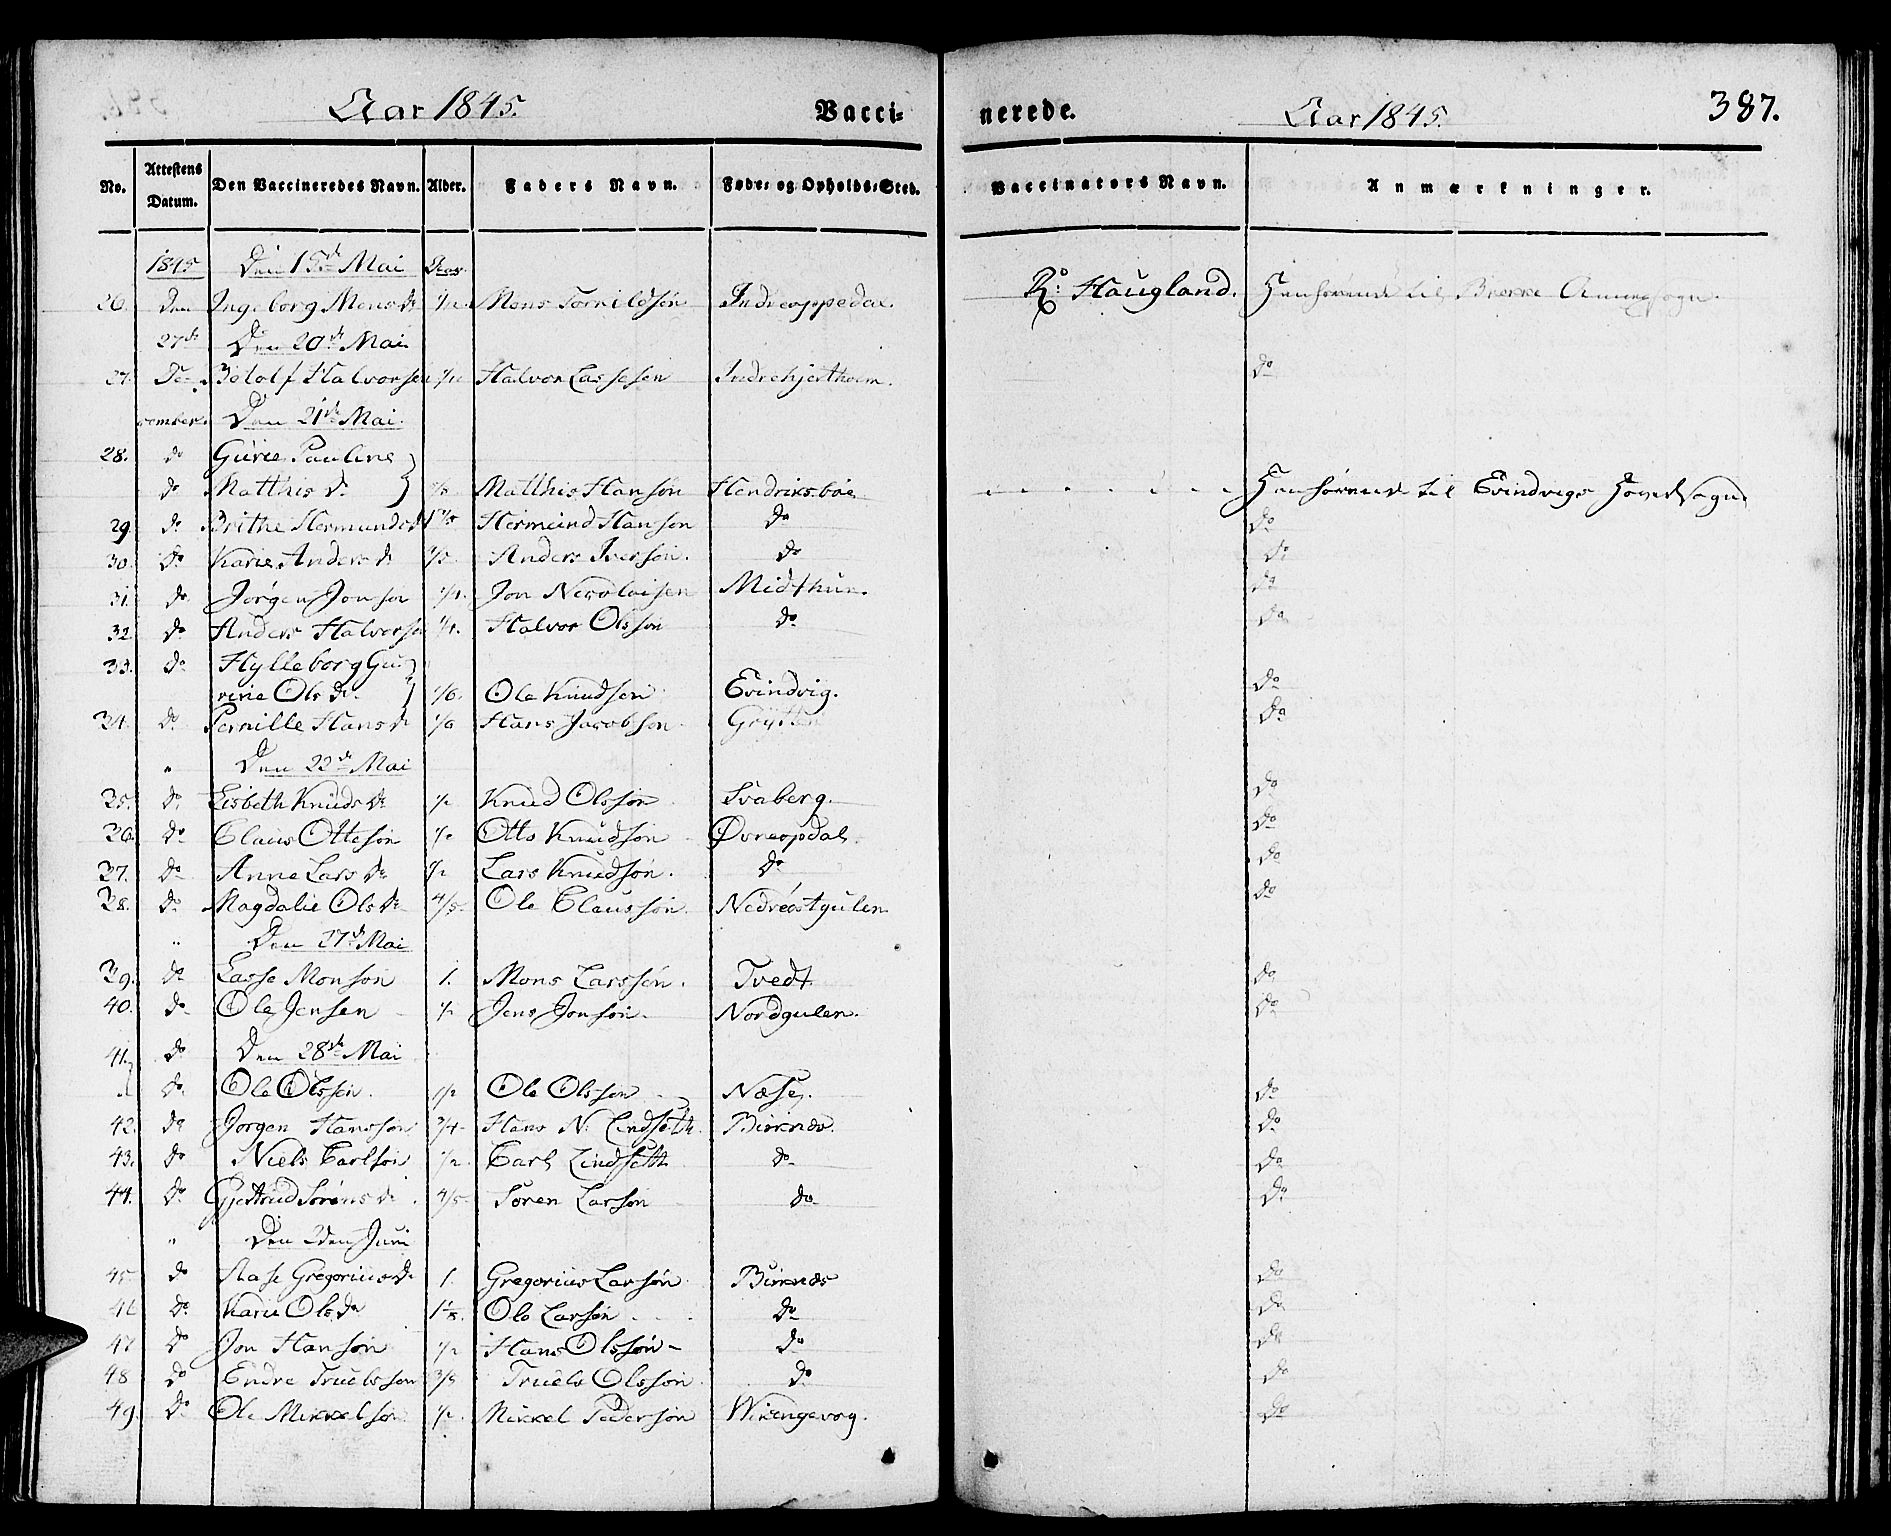 Aar 1845. Vacci- nerede. Aar 1845. 387.
No. Attestens Datum. Den Vaccineredes Navn. Alder. Faders Navn. Føde- og Opholds-Sted. Vaccinators Navn. Anmærkninger.
1845 Den 15de Mai Aar
26. den Ingeborg Mons Dr Mons Tornildsøn Indreoppedal R: Haugland. Henhørende til Brekke Annexsogn.
27de Den 20de Mai
27. De- Botolf Halvorsen Halvor Lassesen Indrehjertholm. do
cember. Den 21de Mai.
28. do Gurie Pauline
do Matthis Dr Matthis Hansøn Hendriksbøe Henhørende til Evindvigs Hovedsogn
29 do Brithe Hermunds Dr Hermund Hansøn do do
30. do Karie Anders Dr Anders Iversøn. do do
31. do Jørgen Jonsøn 1/4. Jon Nicolaisen Midthun. do
32 do Anders Halvorsø 1/4. Halvor Olssøn do do
33. do Hylleborg Gu-
rine Ols Dr 1/6. Ole Knudsøn Evindvig. do
34. do Pernille Hans Dr 1/6 Hans Jacobsøn Grytten do
" Den 22de Mai
35. do Lisbeth Knuds Dr 1/2 Knud Olssøn Svaberg. do
36. do Claus Ottesøn 1/2 Otto Knudsøn Øvreopdal. do
37. do Anne Lars Dr 1/2 Lars Knudsøn. do do
38. do Magdalie Ols Dr 4/5. Ole Claussøn. Nedreøstgulen do
" Den 27de Mai
39. do Lasse Monsøn 1. Mons Larssøn. Tvedt do
40. do Ole Jensen 1/2 Jens Jonsøn. Nordgulen. do
41. do Den 28de Mai
do Ole Olssøn. 1/2 Ole Olssøn Næse, do
42. do Jørgen Hanssøn 3/4 Hans N. Lindseth. Birknæs. do
43. do Niels Carlsøn 1/2 Carl Lindseth do do
44. do Gjertrud Sørens Dr. 4/5 Søren Larsøn do do
" Den 2den Juni
45 do Aase Gregorius Dr 1. Gregorius Larsøn Birknæs do
46 do Karie Ols Dr Ole Larsøn do do
47 do Jon Hansøn 1/2 Hans Olssøn do do
48 do Endre Truelssøn 3/8 Truels Olssøn do do
49. do Ole Mikkelsøn 1/2. Mikkel Pedersøn Wikengevog. do